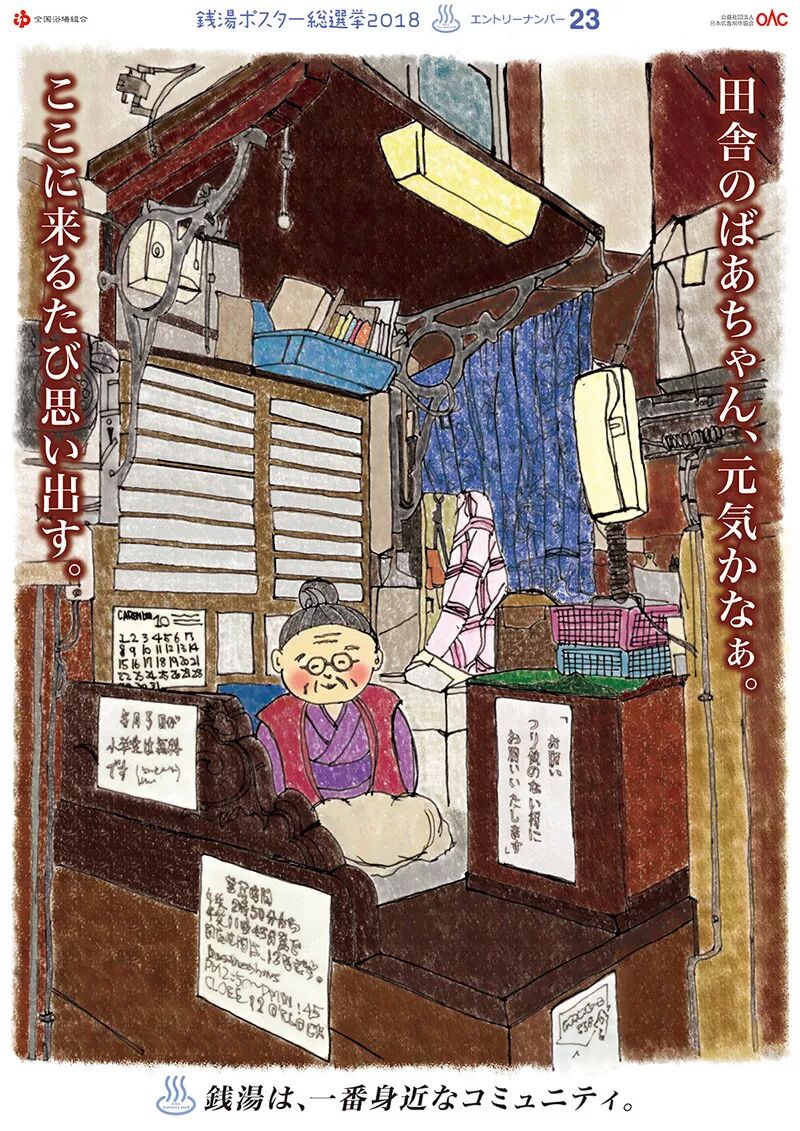 全国浴場組合
銭湯ポスター総選挙2018
エントリーナンバー 23
公益社団法人
日本広告制作協会
OAC
田舎のばあちゃん、元気かなぁ。
ここに来るたび思い出す。
10
2 3 4 5 6 7
8 9 10 11 12 13 14
15 16 17 18 19 20 21
22 23 24 25 26 27 28
小学生は無料
です
「お願い
つり銭のない様に
お願いいたします」
営業時間
午後2時50分から
午後11時45分まで
銭湯は、一番身近なコミュニティ。